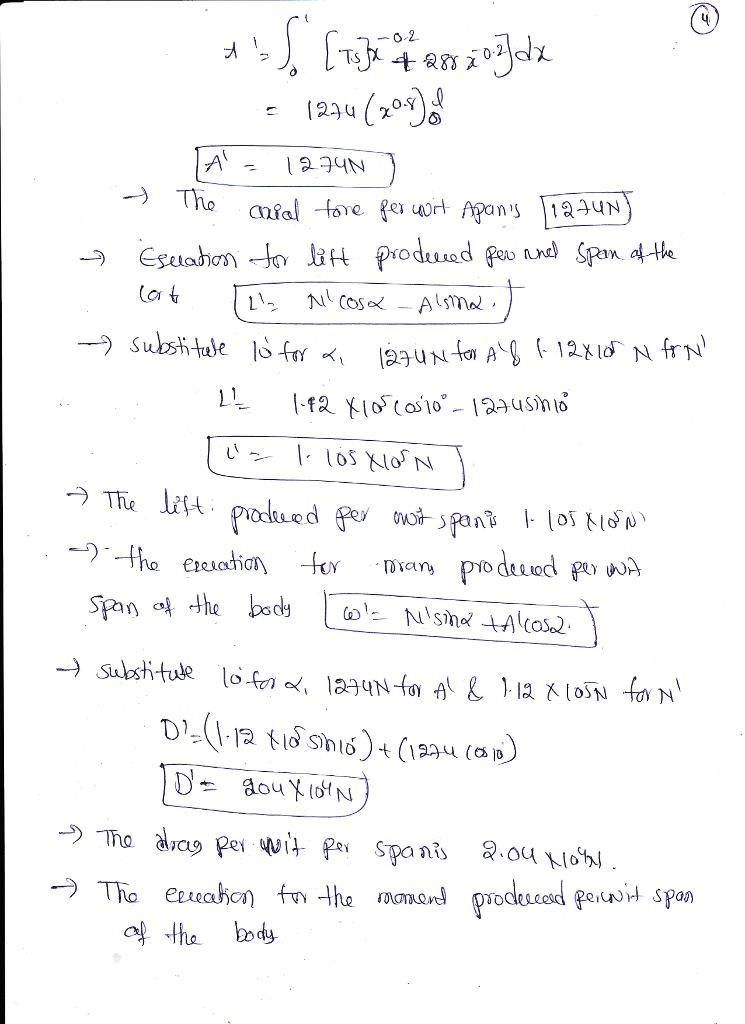 4
A' = ∫₀¹ [731x^-0.2 + 288x^-0.2]dx
= 1274 (x^0.8)₀¹
A' = 1274N
→ The axial fore per unit span is 1274N
→ Equation for lift produced per unit span of the
L' = N' cosα - A' sinα.
→ substitute 10° for α, 1274N for A' & 1.12x10⁵ N for N'
L' = 1.12 X10⁵ cos10° - 1274 sin10°
L' = 1.105 X10⁵ N
→ The lift produced per unit span is 1.105 X10⁵ N
→ the equation for produced per unit
span of the body D' = N' sinα + A' cosα.
→ substitute 10° for α, 1274N for A' & 1.12 X 10⁵N for N'
D' = (1.12 X10⁵ sin10°) + (1274 cos10°)
D' = 204 X 10⁴ N
→ The drag per unit per span is 2.04 X10⁴N.
→ The equation for the moment produced per unit span
of the body